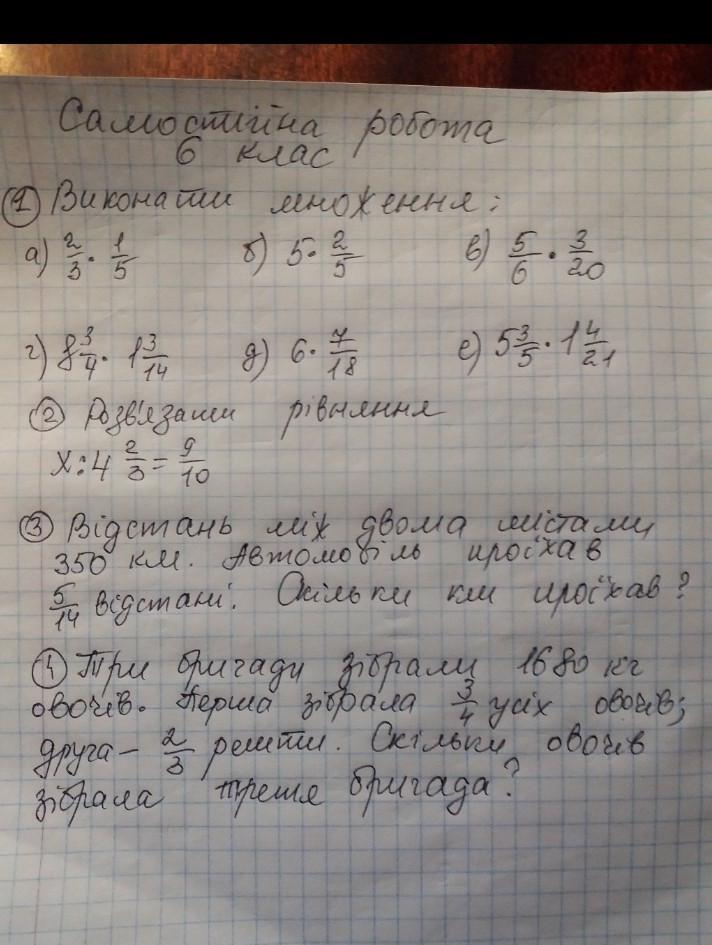 Самостійна робота
6 клас
1 Виконати множення:
а) 2/3 · 1/5 б) 5 · 2/5 в) 5/6 · 3/20
г) 8 3/4 · 1 3/14 д) 6 · 7/18 е) 5 3/5 · 1 4/21
2 Розв'язати рівняння
х : 4 2/3 = 9/10
3 Відстань між двома містами
350 км. Автомобіль проїхав
5/14 відстані. Скільки км проїхав?
4 Три бригади зібрали 1680 кг
овочів. Перша зібрала 3/4 усіх овочів;
друга – 2/3 решти. Скільки овочів
зібрала третя бригада?